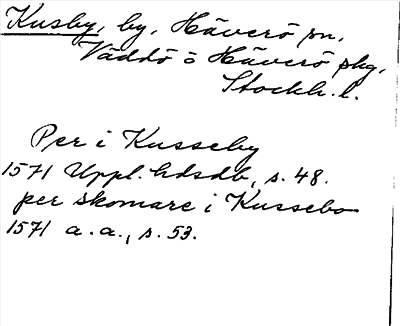 Kusby, by, Häverö sn,
Väddö o Häverö skg,
Stockh. l.
Per i Kusseby
1571 Uppl. hdsdb, s. 48.
per skomare i Kussebo
1571 a. a., s. 53.